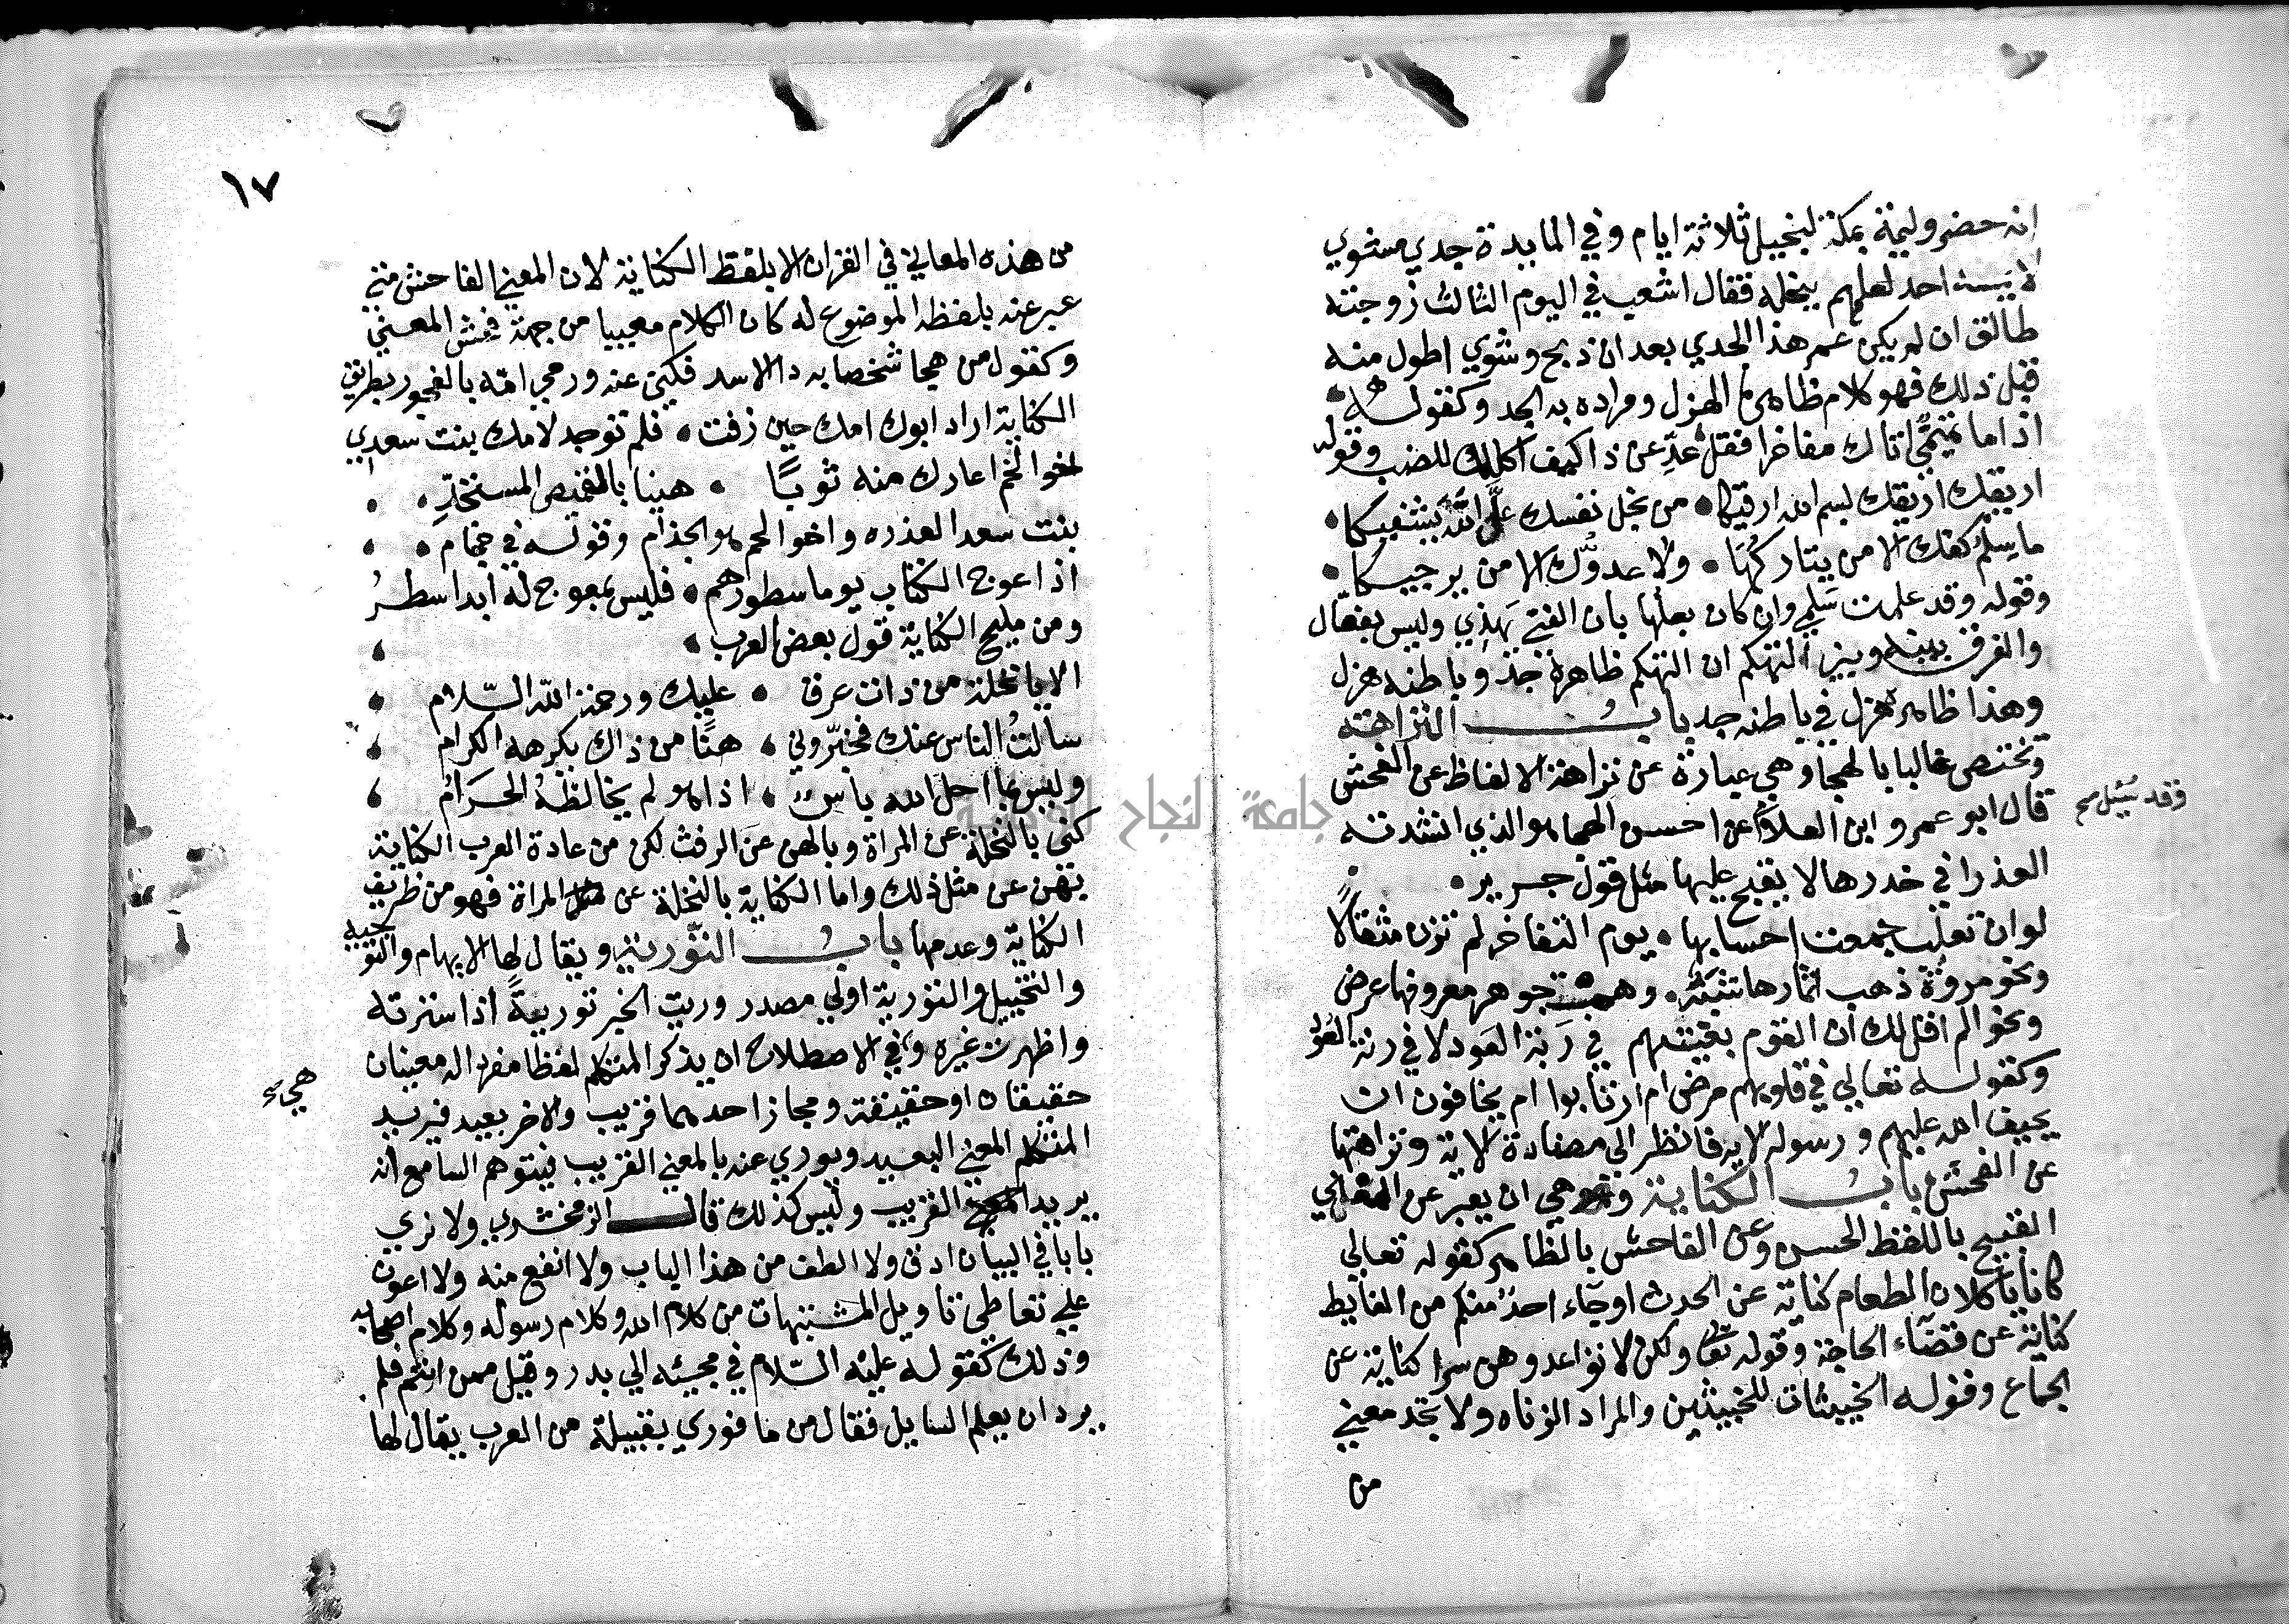 انه حضر وليمة بمكة لبخيل ثلاثة ايام وفي المايدة جدي مشوي
لا يمسه احد لعلمهم ببخله فقال اشعب في اليوم الثالث زوجته
طالق ان لم يكن عمر هذا الجدي بعد ان ذبح وشوي اطول منه
قبل ذلك فهو كلام ظاهره الهزل ومراده به الجد وكقوله
اذا ما تميمي اتاك مفاخرا فقل عدّ عن ذا كيف اكلك للضب وقوله
ارقيك ارقيك بسم الله ارقيكا من بخل نفسك علّ الله يشفيكا
ما سلم كفك الا من يتاركها ولا عدوّك الا من يرجيكا
وقوله وقد علمت سلمي وان كان بعلها بان الفتي يهذي وليس بفعّال
والفرق بينه وبين التهكم ان التهكم ظاهره جد وباطنه هزل
وهذا ظاهره هزل في باطنه جد باب النزاهة
وتختص غالبا بالهجا وهي عبارة عن نزاهة الالفاظ عن الفحش
قال ابو عمرو ابن العلاء عن احسن الهجا هو الذي انشدته
وقد سئل صح
العذرا في خدرها لا يقبح عليها مثل قول جرير
لو ان تغلب جمعت احسابها يوم التفاخر لم تزن مثقالاً
ونحو مروّة ذهب اثمارها شبه وهمة جوهر معروفها عرض
ونحو الم اقل لك ان القوم بغيتهم في ربة العود لا في رنة العود
وكقوله تعالي في قلوبهم مرض ام ارتابوا ام يخافون ان
يحيف الله عليهم ورسوله الاية فانظر الى مضادة الاية ونزاهتها
عن الفحش باب الكناية وهي ان يعبر عن المعاني
القبيح باللفظ الحسن وعن الفاحش بالظاهر كقوله تعالي
كانا ياكلان الطعام كناية عن الحدث او جاء احد منكم من الغايط
كناية عن قضاء الحاجة وقوله تعا ولكن لا تواعدوهن سرا كناية عن
الجماع وقوله الخبيثات للخبيثين والمراد الزناه ولا تجد معني
من
١٧
من هذه المعاني في القران الا بلفظ الكناية لان المعني الفاحش متي
عبر عنه بلفظه الموضوع له كان الكلام معيبا من جهة فحش المعني
وكقول من هجا شخصا به دا الاسد فكني عنه ورمي امه بالفجور بطريق
الكناية اراد ابوك امك حين زفت فلم توجد لامك بنت سعدي
اخو الخم اعارك منه ثوبًا هنيا بالقميص المستجدّ
بنت سعد العذره واخو الحم هو الجذام وقوله في حجام
اذا عوج الكتاب يوما سطورهم فليس بمعوج له ابدا سطرُ
ومن مليح الكناية قول بعض العرب
الا يا نخلة من ذات عرق عليك ورحمة الله السّلام
سالتُ الناس عنك فخبّروني هنًا من ذاك يكرهه الكرام
وليس بما احل الله باس اذا هو لم يخالطهُ الحرامُ
كني بالنخلة عن المراة وبالهن عن الرفث لكن من عادة العرب الكناية
بهن عن مثل ذلك واما الكناية بالنخلة عن المراة فهو من ظريف
الكناية وعدمها باب التّورية ويقال لها الايهام والتوجيه
والتخييل والتورية اولي مصدر وريت الخبر توريةً اذا سترته
واظهرت غيره وفي الاصطلاح ان يذكر المتكلم لفظا مفردا له معنيان
حقيقتان او حقيقة ومجاز احدهما قريب والاخر بعيد فيريد
المتكلم المعني البعيد ويوري عنه بالمعني القريب فيتوهم السامع انه
يريد القريب وليس كذلك قال الزمخشري ولا نري
بابا في البيان ادق ولا الطف من هذا الباب ولا انفع منه ولا اعون
علي تعاطي تاويل المشتبهات من كلام الله وكلام رسوله وكلام اصحابه
وذلك كقوله عليه السّلام في مجيئه الي بدر وقيل ممن انتم فلم
يرد ان يعلم السايل فقال من ما فوري بقبيلة من العرب يقال لها
جامعة النجاح الوطنية